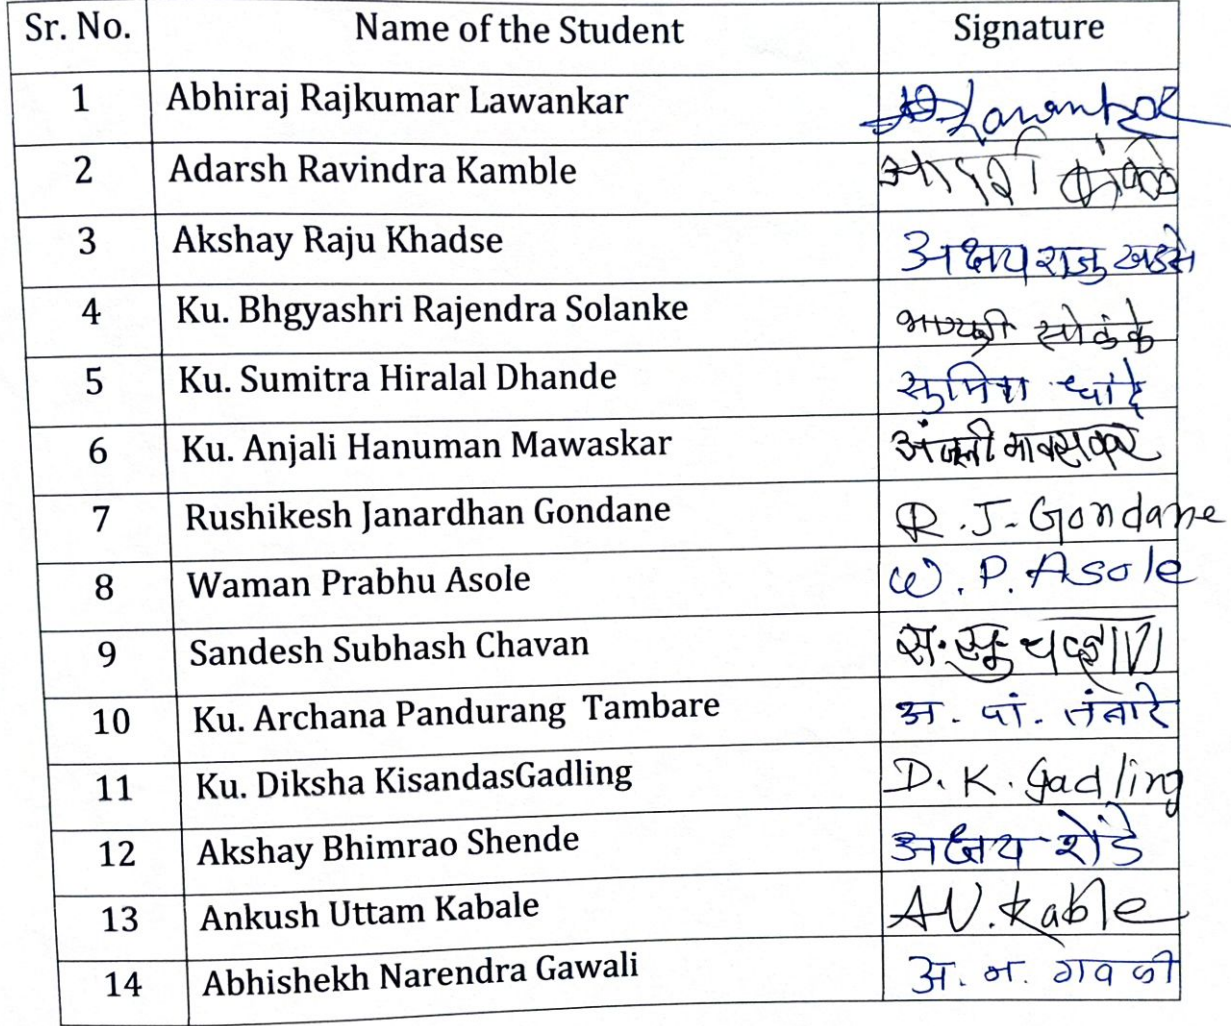 Sr. No. Name of the Student Signature
1 Abhiraj Rajkumar Lawankar Lawankar
2 Adarsh Ravindra Kamble आदर्श कांबळे
3 Akshay Raju Khadse अक्षय राजु खडसे
4 Ku. Bhgyashri Rajendra Solanke भाग्यश्री सोळंके
5 Ku. Sumitra Hiralal Dhande सुमित्रा धांदे
6 Ku. Anjali Hanuman Mawaskar अंजली मावसकर
7 Rushikesh Janardhan Gondane R. J. Gondane
8 Waman Prabhu Asole W. P. Asole
9 Sandesh Subhash Chavan स. सु चव्हाण
10 Ku. Archana Pandurang Tambare अ. पां. तंबारे
11 Ku. Diksha KisandasGadling D. K. Gadling
12 Akshay Bhimrao Shende अक्षय शेंडे
13 Ankush Uttam Kabale A U. Kable
14 Abhishekh Narendra Gawali अ. न. गवळी